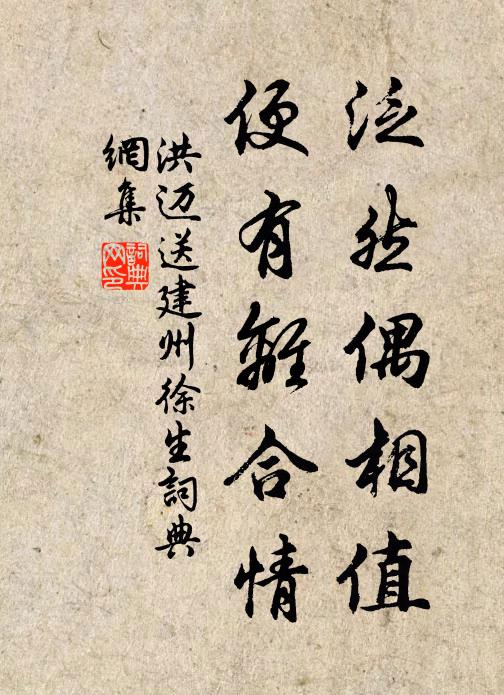 泛然偶相值
便有離合情
洪迈送建州徐生詞典
網集
詞典
网印